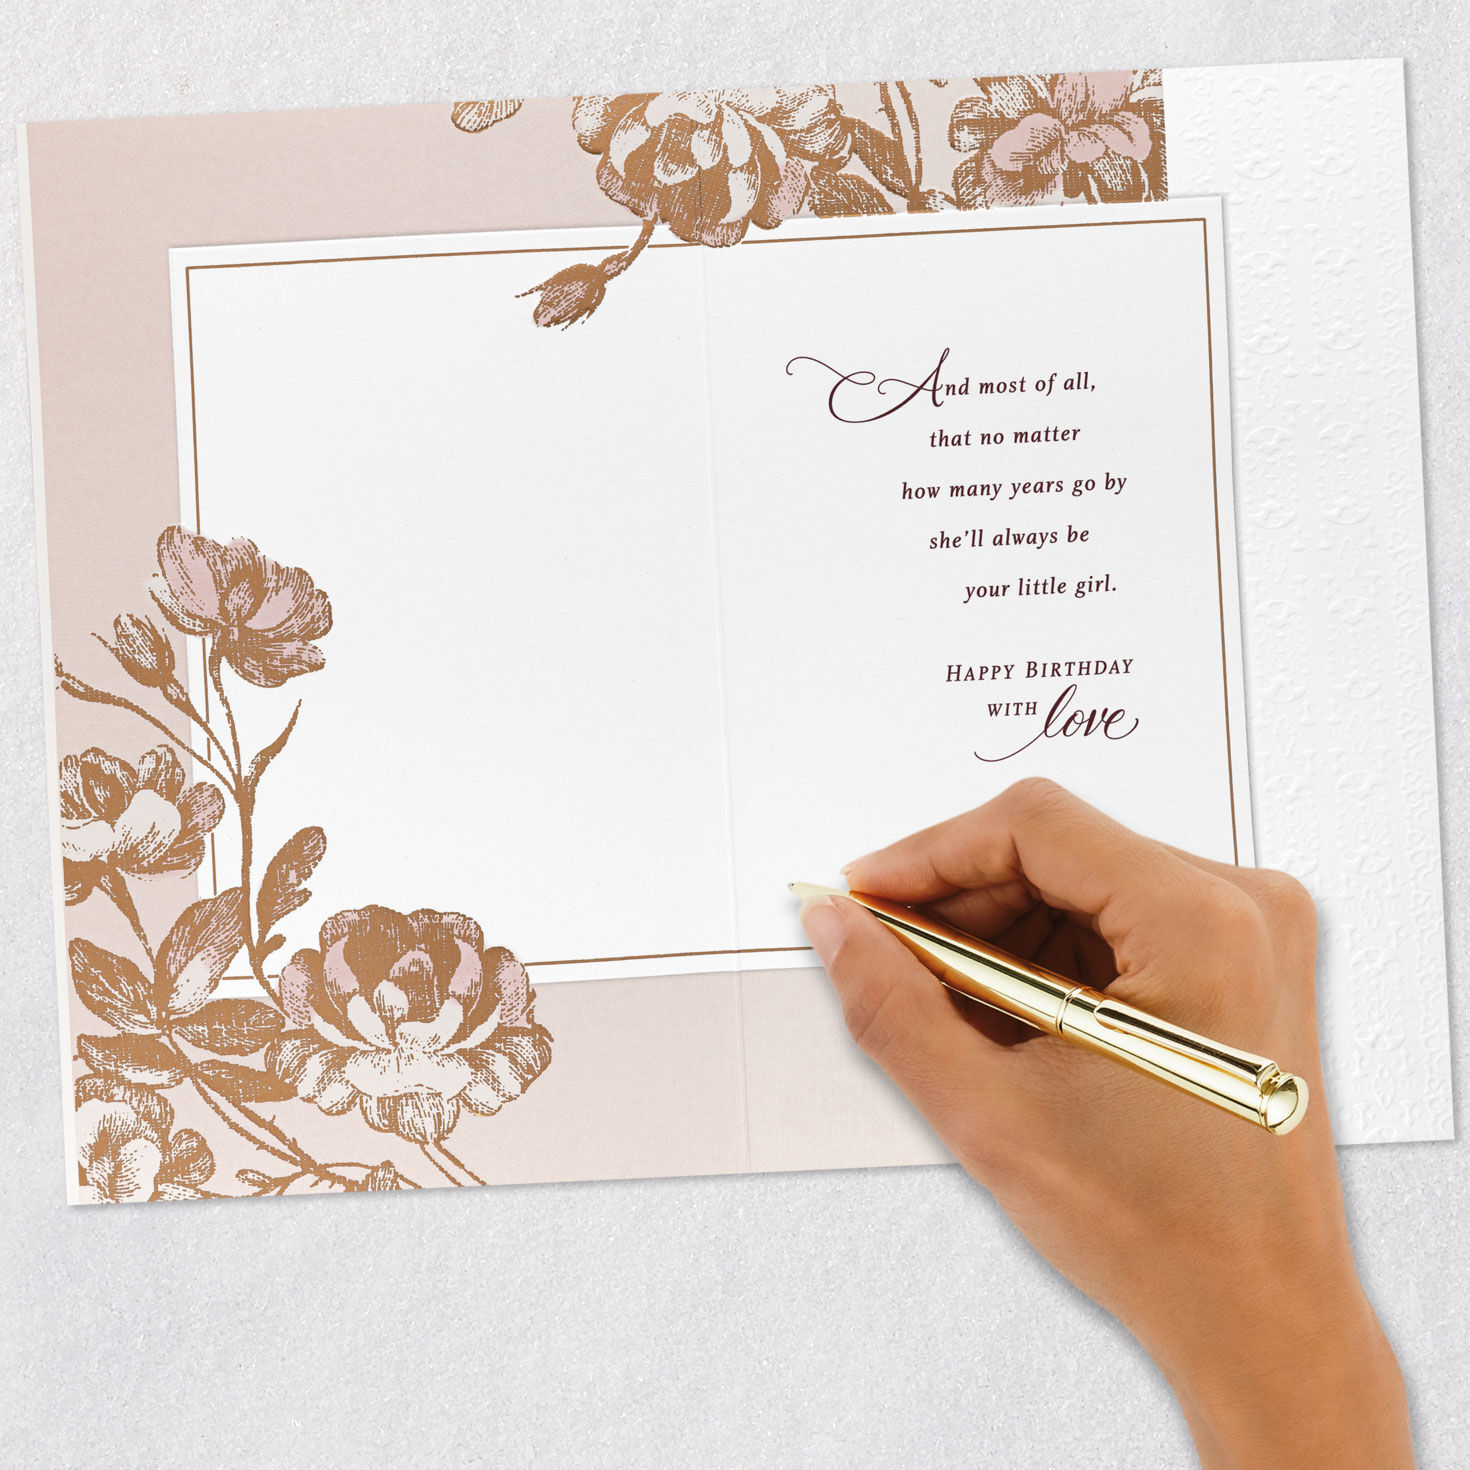 And most of all,
that no matter
how many years go by
she'll always be
your little girl.
Happy Birthday
with love